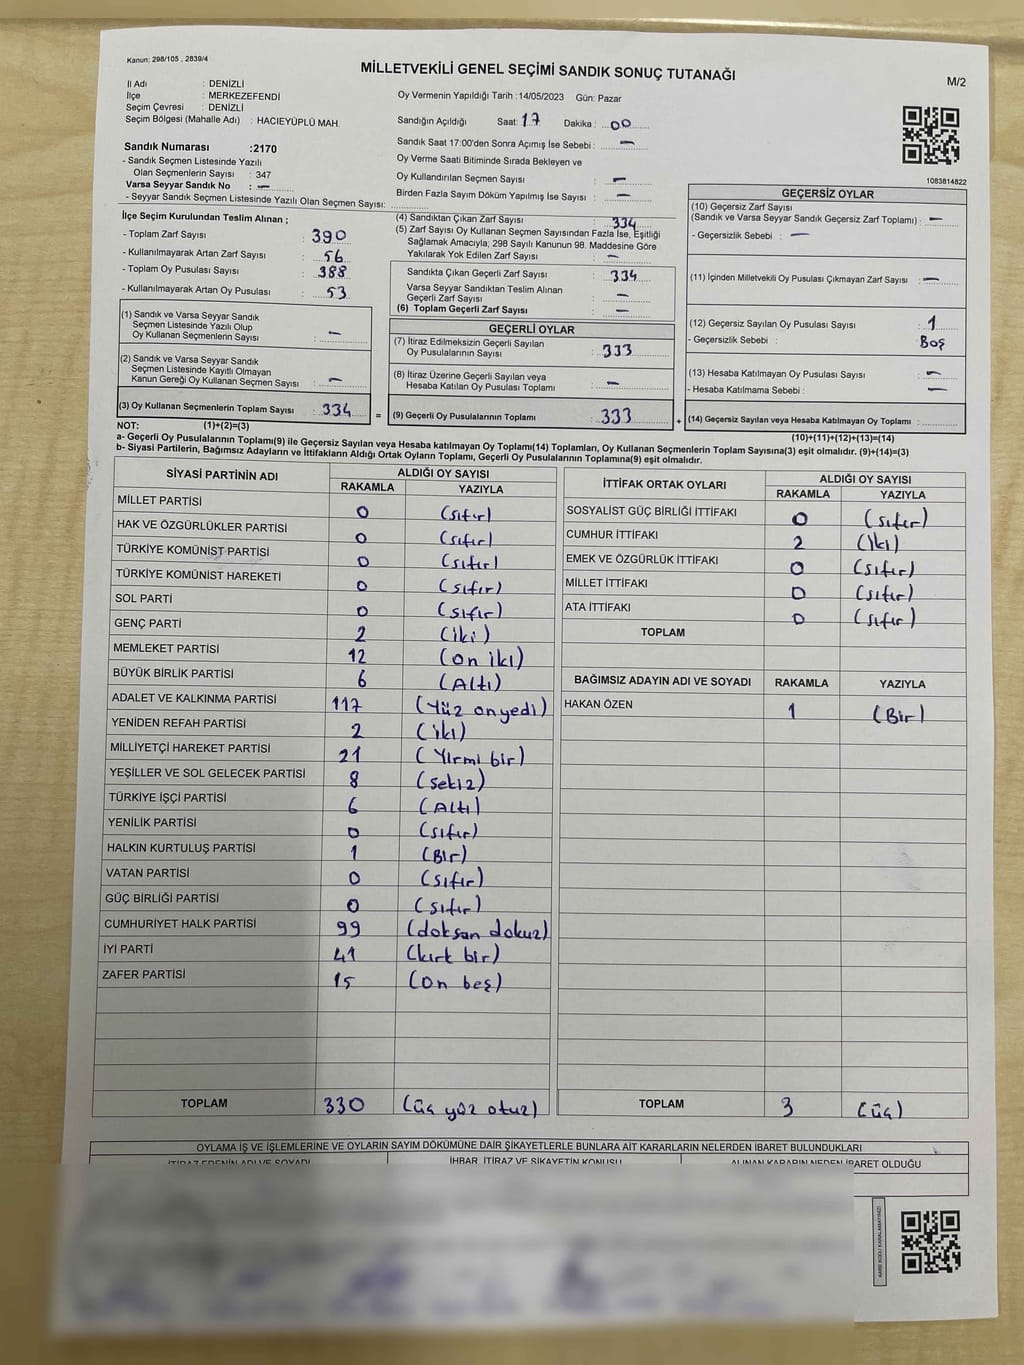 Kanun: 298/105 , 2839/4
MİLLETVEKİLİ GENEL SEÇİMİ SANDIK SONUÇ TUTANAĞI
M/2
İl Adı : DENİZLİ
İlçe : MERKEZEFENDİ
Seçim Çevresi : DENİZLİ
Seçim Bölgesi (Mahalle Adı) : HACIEYÜPLÜ MAH.
Sandık Numarası :2170
- Sandık Seçmen Listesinde Yazılı
Olan Seçmenlerin Sayısı : 347
Varsa Seyyar Sandık No : —
- Seyyar Sandık Seçmen Listesinde Yazılı Olan Seçmen Sayısı:
Oy Vermenin Yapıldığı Tarih :14/05/2023 Gün: Pazar
Sandığın Açıldığı Saat: 17 Dakika : 00
Sandık Saat 17:00'den Sonra Açımış İse Sebebi : —
Oy Verme Saati Bitiminde Sırada Bekleyen ve
Oy Kullandırılan Seçmen Sayısı : —
Birden Fazla Sayım Döküm Yapılmış İse Sayısı : —
1083814822
İlçe Seçim Kurulundan Teslim Alınan ;
- Toplam Zarf Sayısı : 390
- Kullanılmayarak Artan Zarf Sayısı : 56
- Toplam Oy Pusulası Sayısı : 388
- Kullanılmayarak Artan Oy Pusulası : 53
(1) Sandık ve Varsa Seyyar Sandık
Seçmen Listesinde Yazılı Olup
Oy Kullanan Seçmenlerin Sayısı : —
(2) Sandık ve Varsa Seyyar Sandık
Seçmen Listesinde Kayıtlı Olmayan
Kanun Gereği Oy Kullanan Seçmen Sayısı : —
(3) Oy Kullanan Seçmenlerin Toplam Sayısı : 334
(1)+(2)=(3)
(4) Sandıktan Çıkan Zarf Sayısı : 334
(5) Zarf Sayısı Oy Kullanan Seçmen Sayısından Fazla İse, Eşitliği
Sağlamak Amacıyla; 298 Sayılı Kanunun 98. Maddesine Göre
Yakılarak Yok Edilen Zarf Sayısı : —
Sandıkta Çıkan Geçerli Zarf Sayısı : 334
Varsa Seyyar Sandıktan Teslim Alınan
Geçerli Zarf Sayısı : —
(6) Toplam Geçerli Zarf Sayısı : —
GEÇERLİ OYLAR
(7) İtiraz Edilmeksizin Geçerli Sayılan
Oy Pusulalarının Sayısı : 333
(8) İtiraz Üzerine Geçerli Sayılan veya
Hesaba Katılan Oy Pusulası Toplamı : —
= (9) Geçerli Oy Pusulalarının Toplamı : 333 +
GEÇERSİZ OYLAR
(10) Geçersiz Zarf Sayısı
(Sandık ve Varsa Seyyar Sandık Geçersiz Zarf Toplamı) : —
- Geçersizlik Sebebi : —
(11) İçinden Milletvekili Oy Pusulası Çıkmayan Zarf Sayısı : —
(12) Geçersiz Sayılan Oy Pusulası Sayısı : 1
- Geçersizlik Sebebi : Boş
(13) Hesaba Katılmayan Oy Pusulası Sayısı : —
- Hesaba Katılmama Sebebi : —
(14) Geçersiz Sayılan veya Hesaba Katılmayan Oy Toplamı :
(10)+(11)+(12)+(13)=(14)
NOT:
a- Geçerli Oy Pusulalarının Toplamı(9) ile Geçersiz Sayılan veya Hesaba katılmayan Oy Toplamı(14) Toplamları, Oy Kullanan Seçmenlerin Toplam Sayısına(3) eşit olmalıdır. (9)+(14)=(3)
b- Siyasi Partilerin, Bağımsız Adayların ve İttifakların Aldığı Ortak Oyların Toplamı, Geçerli Oy Pusulalarının Toplamına(9) eşit olmalıdır.
SİYASİ PARTİNİN ADI ALDIĞI OY SAYISI
RAKAMLA YAZIYLA
MİLLET PARTİSİ 0 (sıfır)
HAK VE ÖZGÜRLÜKLER PARTİSİ 0 (sıfır)
TÜRKİYE KOMÜNİST PARTİSİ 0 (sıfır)
TÜRKİYE KOMÜNİST HAREKETİ 0 (sıfır)
SOL PARTİ 0 (sıfır)
GENÇ PARTİ 2 (iki)
MEMLEKET PARTİSİ 12 (on iki)
BÜYÜK BİRLİK PARTİSİ 6 (Altı)
ADALET VE KALKINMA PARTİSİ 117 (Yüz onyedi)
YENİDEN REFAH PARTİSİ 2 (iki)
MİLLİYETÇİ HAREKET PARTİSİ 21 (Yirmi bir)
YEŞİLLER VE SOL GELECEK PARTİSİ 8 (sekiz)
TÜRKİYE İŞÇİ PARTİSİ 6 (Altı)
YENİLİK PARTİSİ 0 (sıfır)
HALKIN KURTULUŞ PARTİSİ 1 (Bir)
VATAN PARTİSİ 0 (sıfır)
GÜÇ BİRLİĞİ PARTİSİ 0 (sıfır)
CUMHURİYET HALK PARTİSİ 99 (doksan dokuz)
İYİ PARTİ 41 (kırk bir)
ZAFER PARTİSİ 15 (on beş)
TOPLAM 330 (üç yüz otuz)
İTTİFAK ORTAK OYLARI ALDIĞI OY SAYISI
RAKAMLA YAZIYLA
SOSYALİST GÜÇ BİRLİĞİ İTTİFAKI 0 (sıfır)
CUMHUR İTTİFAKI 2 (iki)
EMEK VE ÖZGÜRLÜK İTTİFAKI 0 (sıfır)
MİLLET İTTİFAKI 0 (sıfır)
ATA İTTİFAKI 0 (sıfır)
TOPLAM
BAĞIMSIZ ADAYIN ADI VE SOYADI RAKAMLA YAZIYLA
HAKAN ÖZEN 1 (Bir)
TOPLAM 3 (üç)
OYLAMA İŞ VE İŞLEMLERİNE VE OYLARIN SAYIM DÖKÜMÜNE DAİR ŞİKAYETLERLE BUNLARA AİT KARARLARIN NELERDEN İBARET BULUNDUKLARI
İTİRAZ EDENİN ADI VE SOYADI İHBAR, İTİRAZ VE ŞİKAYETİN KONUSU ALINAN KARARIN NEDEN İBARET OLDUĞU